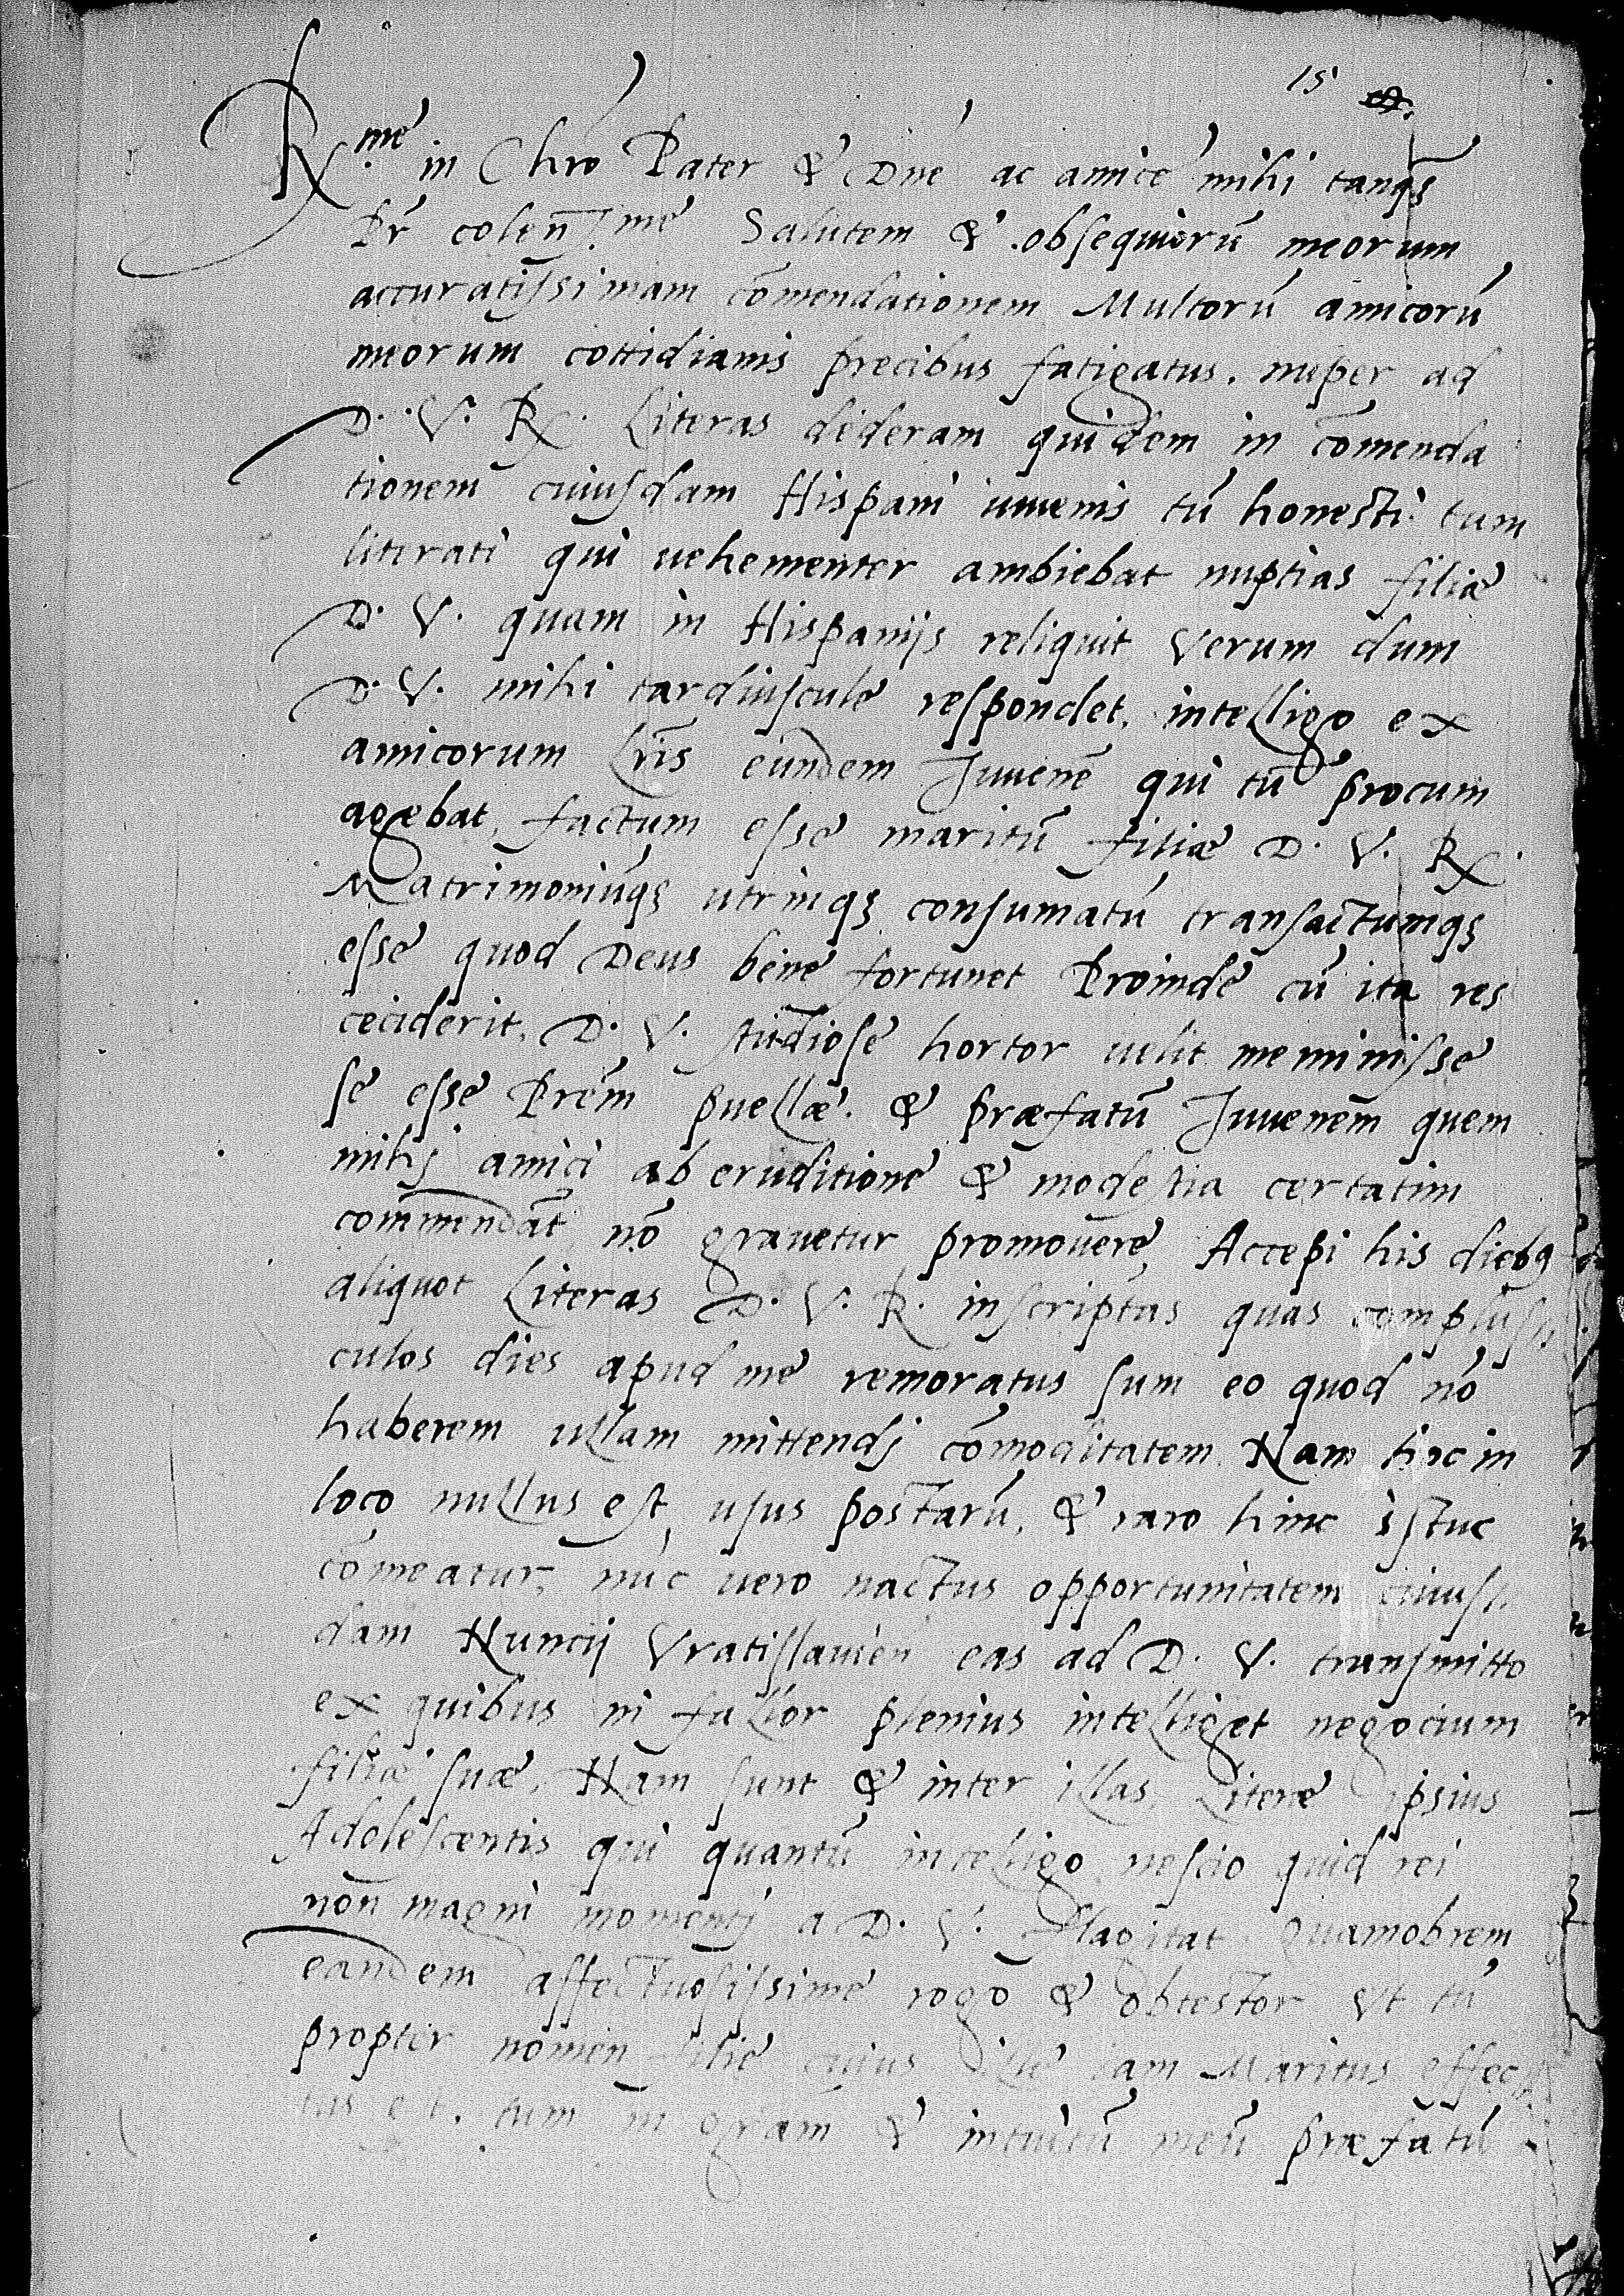 15
R.me in Chro Pater & Dne ac amice mihi tanqȝ
Pr colen.me Salutem & obsequiorū meorum
accuratissimam cōmendationem Multorū amicorū
meorum cottidianis precibus fatigatus. nuper ad
D. V. R. Literas dederam quidem in cōmenda
tionem cuiusdam Hispani iuuenis tū honesti tum
literati qui uehementer ambiebat nuptias filiæ
D. V. quam in Hispanijs reliquit Verum dum
D. V. mihi tardiuscule respondet, intelligo ex
amicorum Lris eundem Juuenē qui tū procum
agebat, factum esse maritū filiæ D. V. R.
Matrimoniūqȝ utrinqȝ consumatū transactumqȝ
esse quod Deus bene fortunet Proinde cū ita res
ceciderit, D. V. studiose hortor uelit meminisse
se esse Prēm puellæ. & præfatū Juuenem quem
mihj amici ab eruditione & modestia certatim
commendāt nō grauetur promouere, Accepi his diebꝰ
aliquot Literas D. V. R. inscriptas quas complus
culos dies apud me remoratus sum eo quod nō
haberem ullam mittendj cōmoditatem Nam hic in
loco nullus est usus postarū, & raro hinc istuc
cōmeatur, nūc uero nactus opportunitatem cuius
dam Nuncij Vratislauien eas ad D. V. transmitto
ex quibus ni fallor plenius intelliget negocium
filiæ suæ, Nam sunt & inter illas Literæ ipsius
Adolescentis qui quantū intelligo nescio quid rei
non magni momentj a D. V. flagitat Quamobrem
eandem affectuosissime rogo & obtestor Vt tū
propter nomen filiæ cuius ille iam Maritus effec
tus est. tum in gr̄am & intuitū meū præfatū